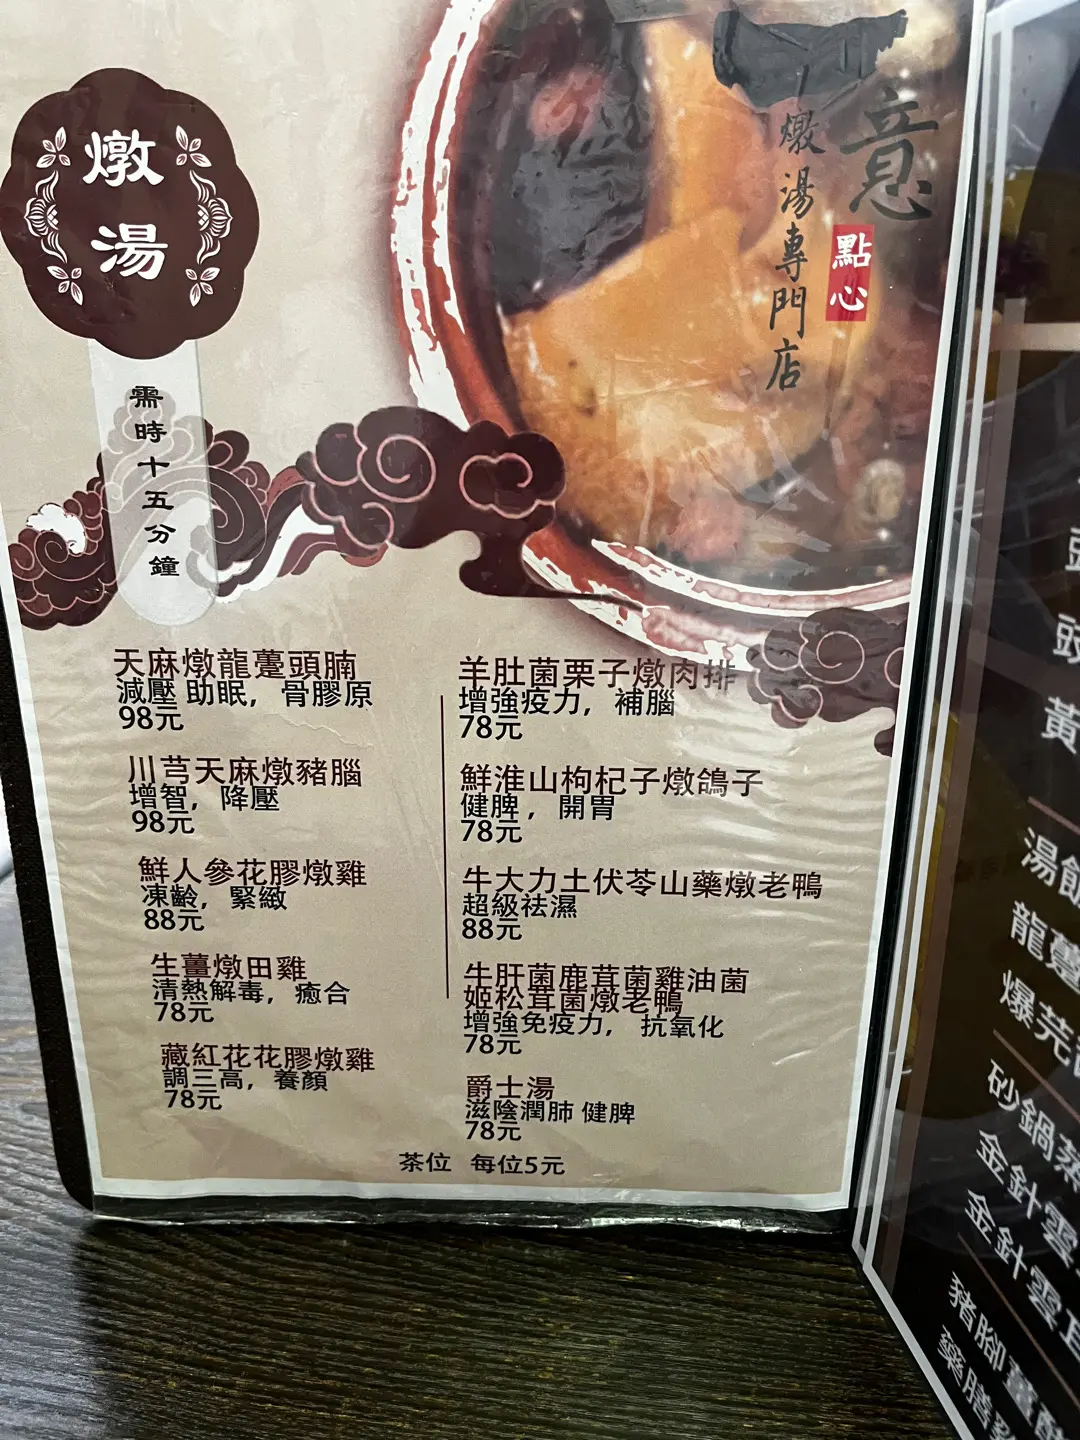 燉湯
需時十五分鐘
意
點心
燉湯專門店
天麻燉龍躉頭腩
減壓 助眠，骨膠原
98元
川芎天麻燉豬腦
增智，降壓
98元
鮮人參花膠燉雞
凍齡，緊緻
88元
生薑燉田雞
清熱解毒，癒合
78元
藏紅花花膠燉雞
調三高，養顏
78元
羊肚菌栗子燉肉排
增強疫力，補腦
78元
鮮淮山枸杞子燉鴿子
健脾，開胃
78元
牛大力土伏苓山藥燉老鴨
超級祛濕
88元
牛肝菌鹿茸菌雞油菌
姬松茸菌燉老鴨
增強免疫力，抗氧化
78元
爵士湯
滋陰潤肺 健脾
78元
茶位 每位5元
黃
湯飯
龍躉
爆芫
砂鍋蒸
金針雲
金針雲耳
豬腳薑醋
藥膳雞